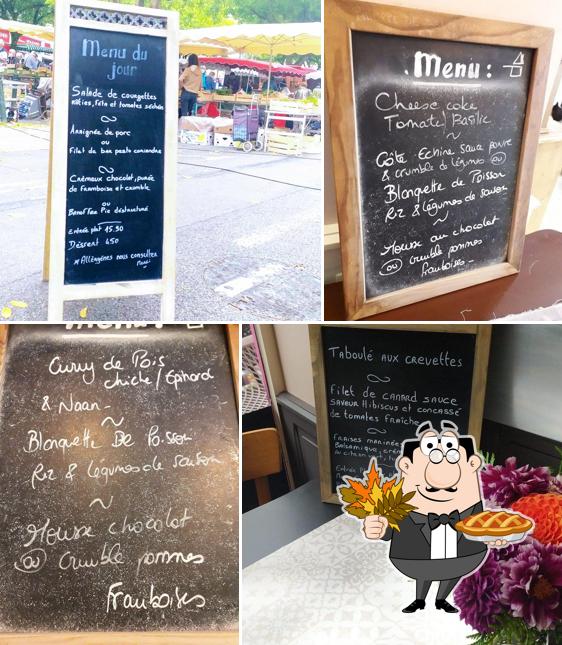 Menu du
jour
Salade de courgettes
rôties, feta et tomates séchées
Araignée de porc
ou
Filet de bar pesto coriandre
Crémeux chocolat, purée
de framboise et crumble
ou
Banoffee Pie déstructuré
Entrée plat 15.50
Déssert 4.50
* Allergènes nous consulter
Merci
Menu :
Cheese cake
Tomate/Basilic
Côte Echine Sauce poivre
& crumble de légumes ou
Blanquette de Poisson
Riz & légumes de saison
Mousse au chocolat
ou crumble pommes
framboises -
Menu :
Curry de Pois
chiche / Epinard
& Naan -
Blanquette De Poisson
Riz & légumes de saison
Mousse chocolat
ou crumble pommes
Framboises
Taboulé aux crevettes
Filet de canard sauce
saveur Hibiscus et concassé
de tomates fraîche
Fraises marinées
Balsamique, crém
au citron
Entrée